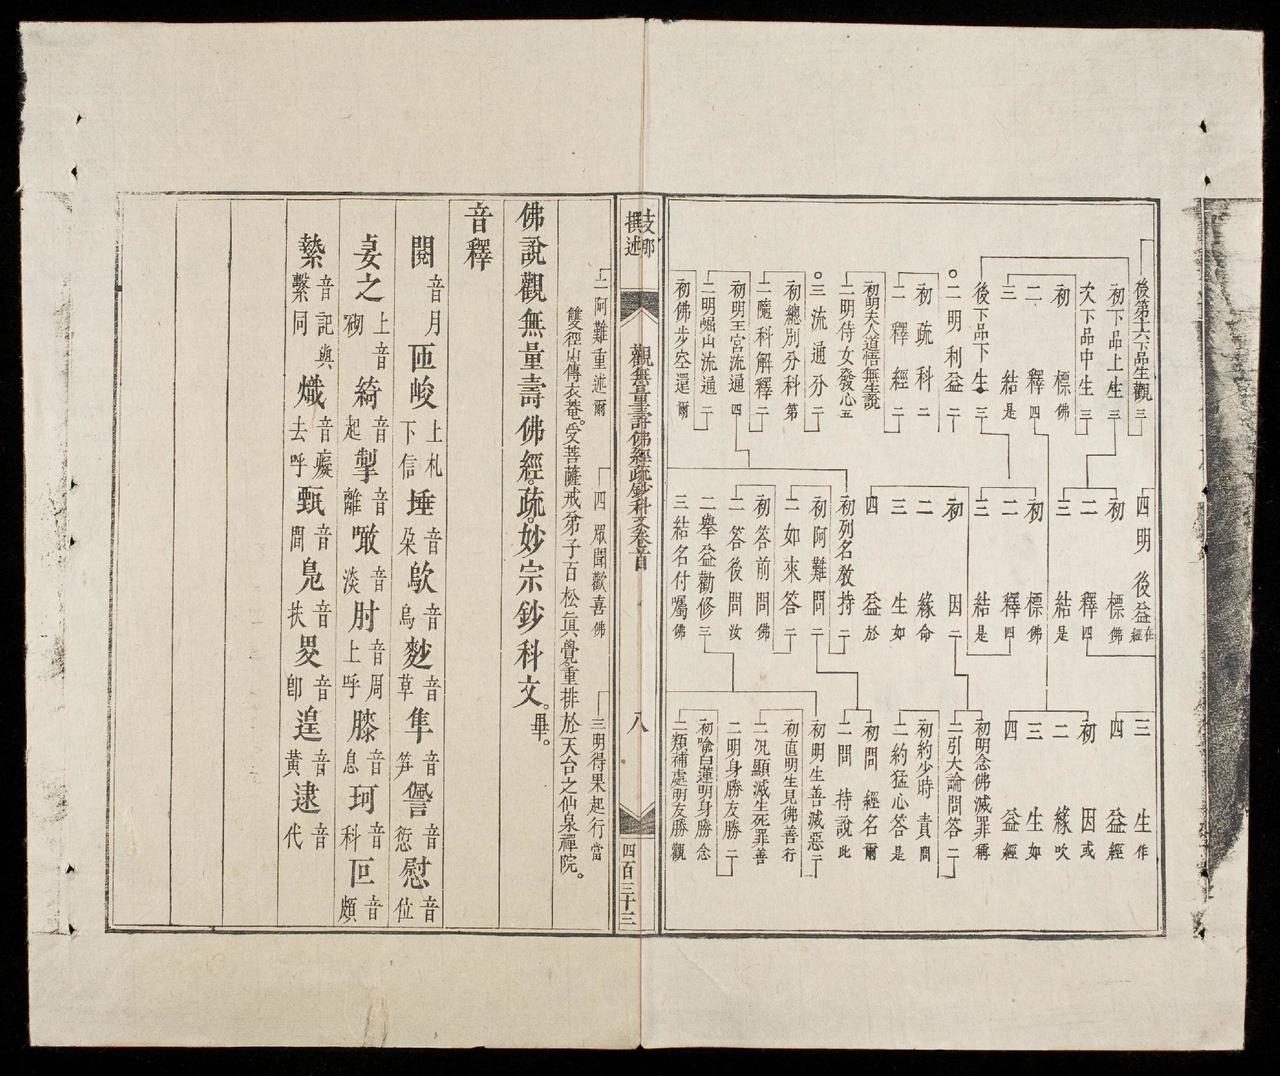 後第十六下品生觀三
初下品上生三
次下品中生三
初標佛
二釋四
三結是
後下品下生三
○二明利益二
初疏科二
二釋經二
初明夫人道悟無生說
二明侍女發心五
○三流通分二
初總別分科第
二隨科解釋二
初明王宮流通四
二明崛山流通二
初佛步空還爾
四明後益在經
初標佛
二釋四
三結是
初標佛
二釋四
三結是
初因二
二緣命
三生如
四益於
初列名教持二
初阿難問二
二如來答二
初答前問佛
二答後問汝
二舉益勸修三
三結名付囑佛
三生作
四益經
初因或
二緣吹
三生如
四益經
初明念佛滅罪稱
二引大論問答二
初約少時責問
二約猛心答是
初問經名爾
二問持說此
初明生善滅惡二
初直明生見佛善行
二況顯滅生死罪善
二明身勝友勝二
初喻白蓮明身勝念
二類補處明友勝觀
支那撰述
觀無量壽佛經疏鈔科文卷首
八
四百三十三
二阿難重述爾
四眾聞歡喜佛
三明得果起行當
雙徑山傳衣菴。受菩薩戒弟子百松真覺重排於天台之仙泉禪院。
佛說觀無量壽佛經。疏。妙宗鈔科文。畢。
音釋
閱音月 匝 峻上札下信 埵音朵 歍音烏 麨音草 隼音笋 諐音愆 慰音位
妄之上音砌 綺音起 掣音離 噉音淡 肘音周上呼 膝音息 珂音科 叵音頗
縶音記與繫同 熾音癡去呼 甄音問 鳧音扶 畟音即 遑音黃 逮音代